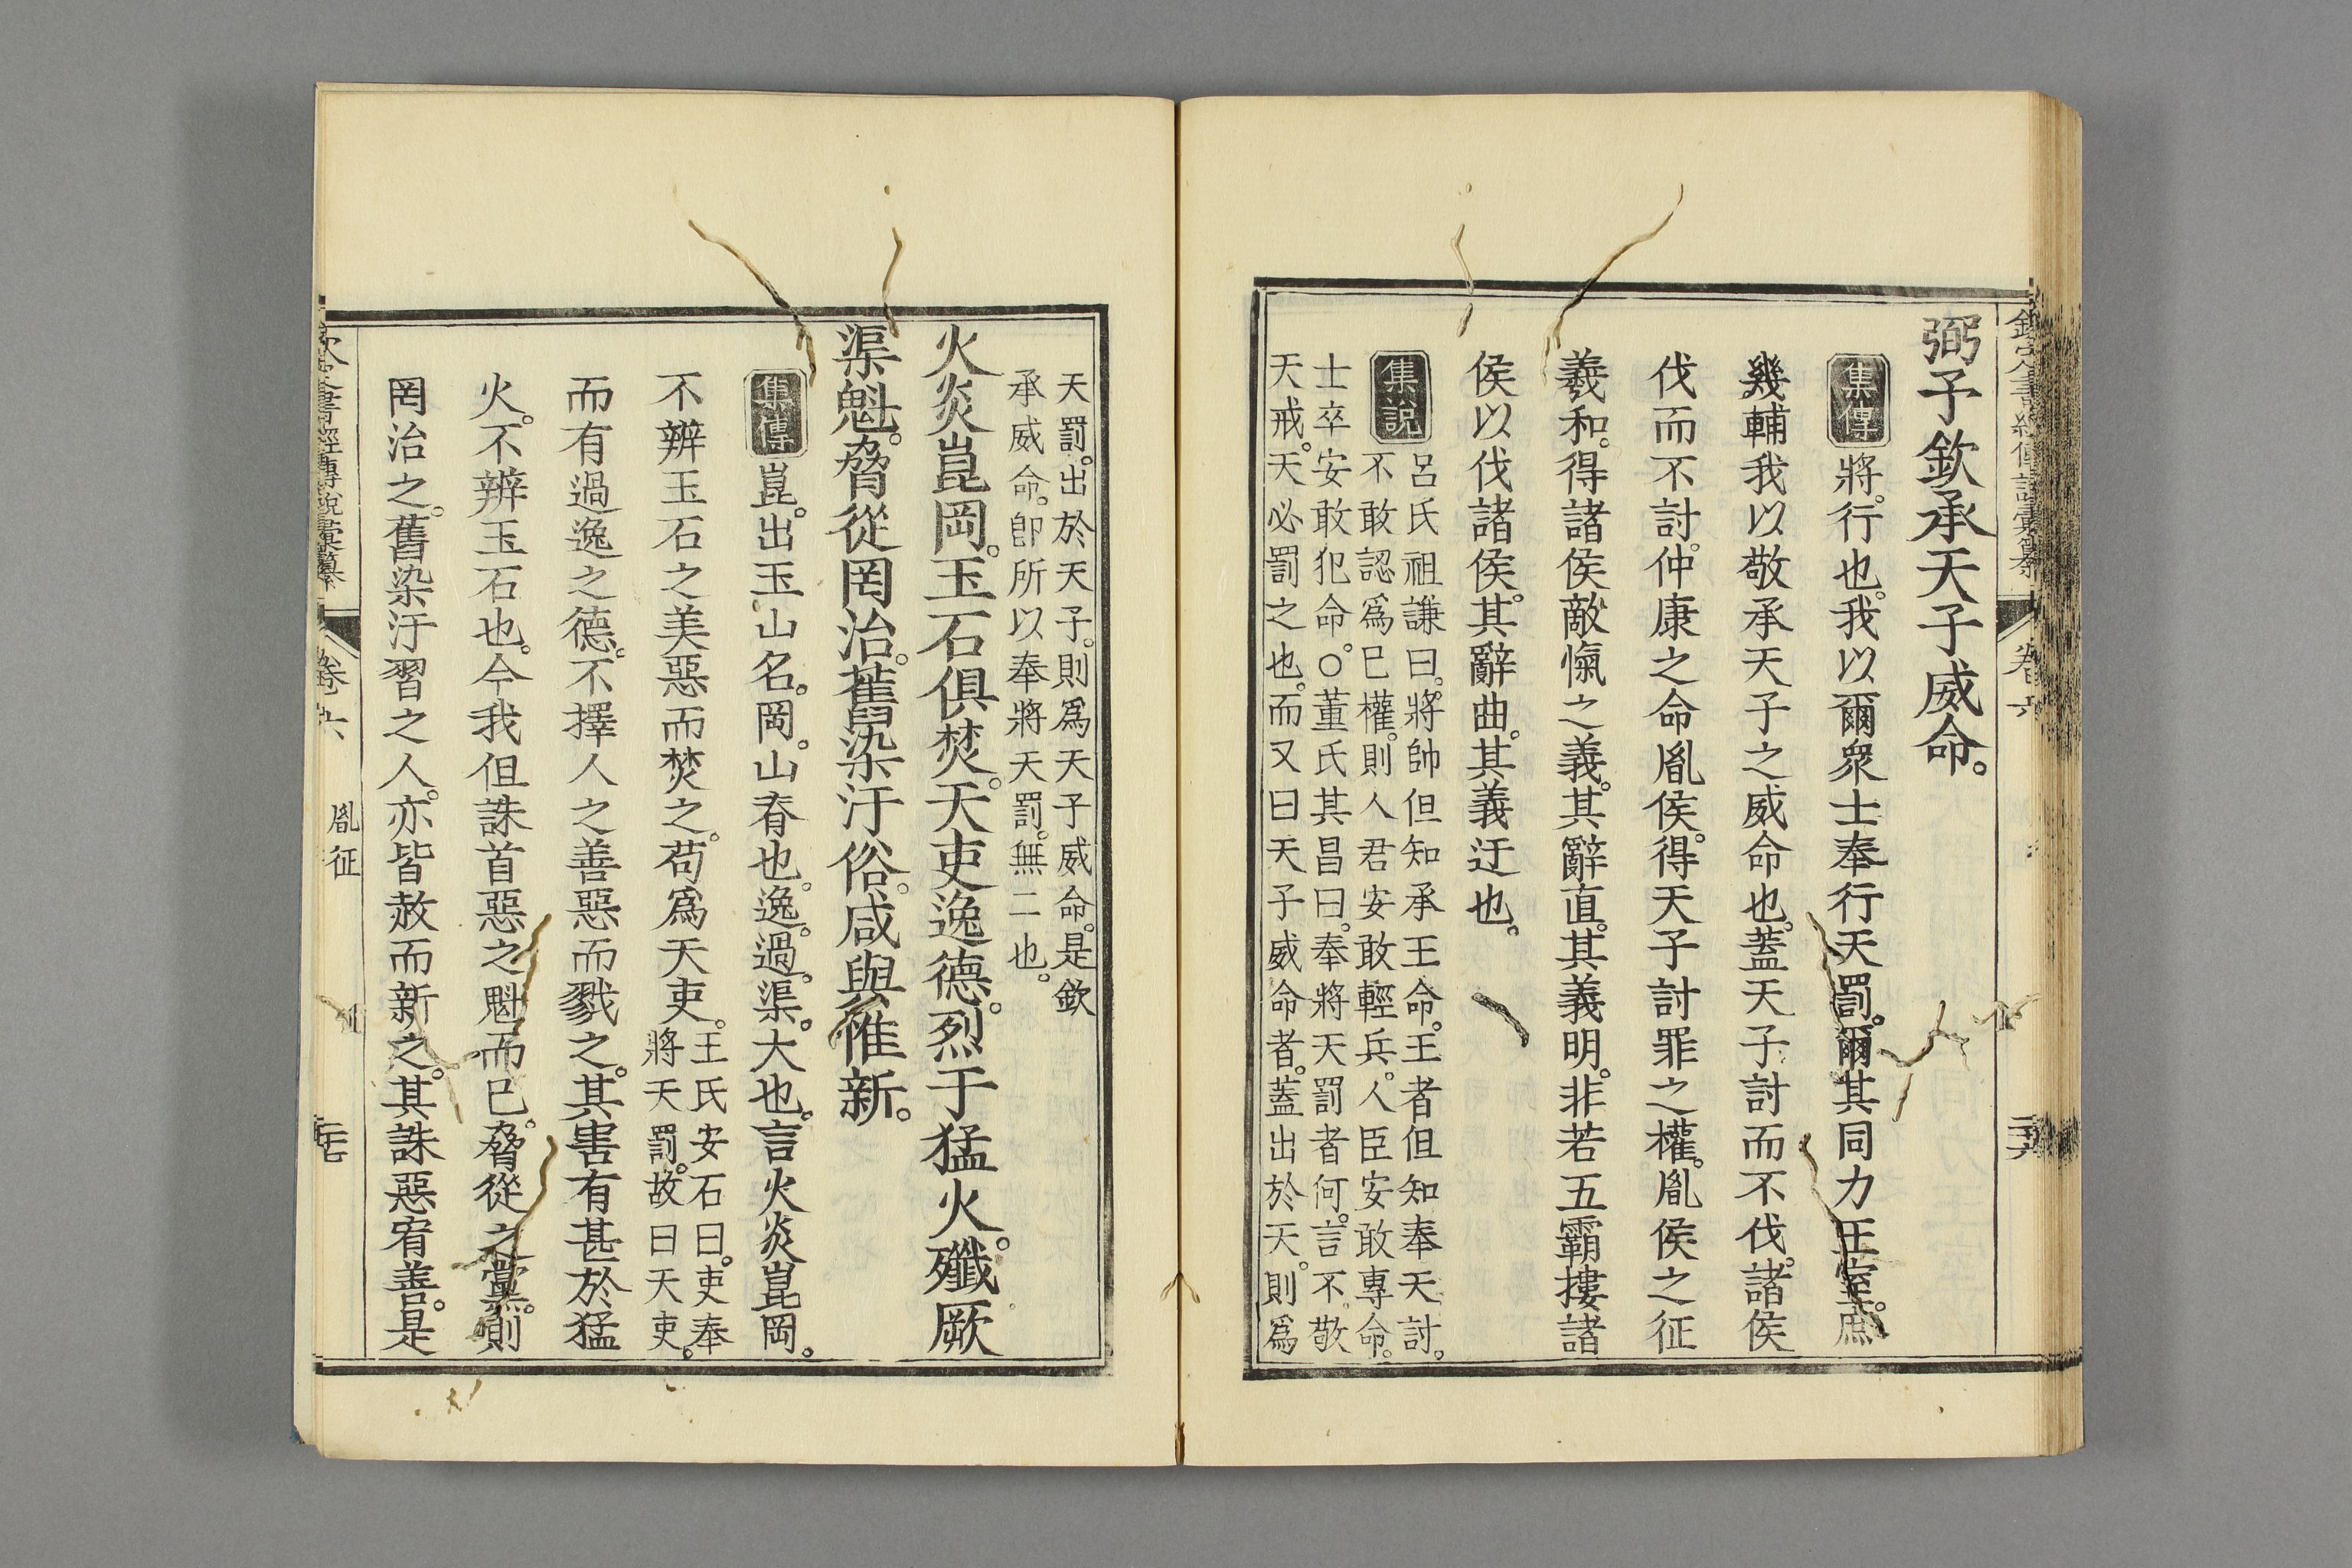 欽定書經傳說彙纂
卷六
弼予欽承天子威命。
集傳
將。行也。我以爾衆士奉行天罰。爾其同力王室。庶
幾輔我以敬承天子之威命也。蓋天子討而不伐。諸侯
伐而不討。仲康之命胤侯。得天子討罪之權。胤侯之征
羲和。得諸侯敵愾之義。其辭直。其義明。非若五霸摟諸
侯以伐諸侯。其辭曲。其義迂也。
集說
呂氏祖謙曰。將帥但知承王命。王者但知奉天討。
不敢認爲己權。則人君安敢輕兵。人臣安敢專命。
士卒安敢犯命。○董氏其昌曰。奉將天罰者何。言不敬
天戒。天必罰之也。而又曰天子威命者。蓋出於天。則爲
天罰。出於天子。則爲天子威命。是欽
承威命。卽所以奉將天罰。無二也。
火炎崑岡。玉石俱焚。天吏逸德。烈于猛火。殲厥
渠魁。脅從罔治。舊染汙俗。咸與惟新。
集傳
崑。出玉山名。岡。山脊也。逸。過。渠。大也。言火炎崑岡。
不辨玉石之美惡而焚之。苟爲天吏。王氏安石曰。吏奉
將天罰。故曰天吏。
而有過逸之德。不擇人之善惡而戮之。其害有甚於猛
火。不辨玉石也。今我但誅首惡之魁而已。脅從之黨。則
罔治之。舊染汙習之人。亦皆赦而新之。其誅惡宥善。是
欽定書經傳說彙纂
卷六
胤征
二十七